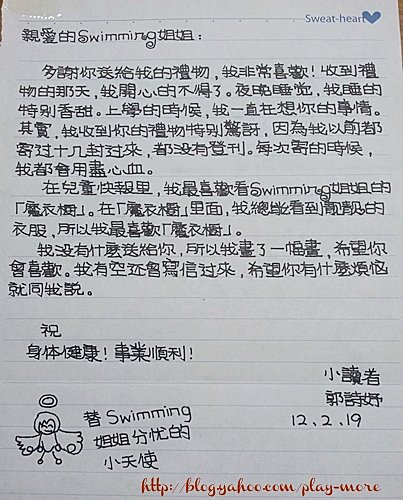 Sweat-heart
親愛的Swimming姐姐：
多謝你送給我的禮物，我非常喜歡！收到禮
物的那天，我開心的不得了。夜晚睡覺，我睡的
特別香甜。上學的時候，我一直在想你的事情。
其實，我收到你的禮物特別驚訝，因為我以前都
寄过十几封过來，都没有登刊。每次寄的時候，
我都會用盡心血。
在兒童快報里，我最喜歡看Swimming姐姐的
「魔衣櫥」。在「魔衣櫥」里面，我總能看到靚靚的
衣服，所以我最喜歡「魔衣櫥」。
我没有什么送給你，所以我畫了一幅畫，希望你
會喜歡。我有空还會寫信过來，希望你有什麼煩惱
就同我説。
祝
身体健康！事業順利！
小讀者
郭詩妤
12.2.19
替Swimming
姐姐分忧的
小天使
http://blog.yahoo.com/play-more